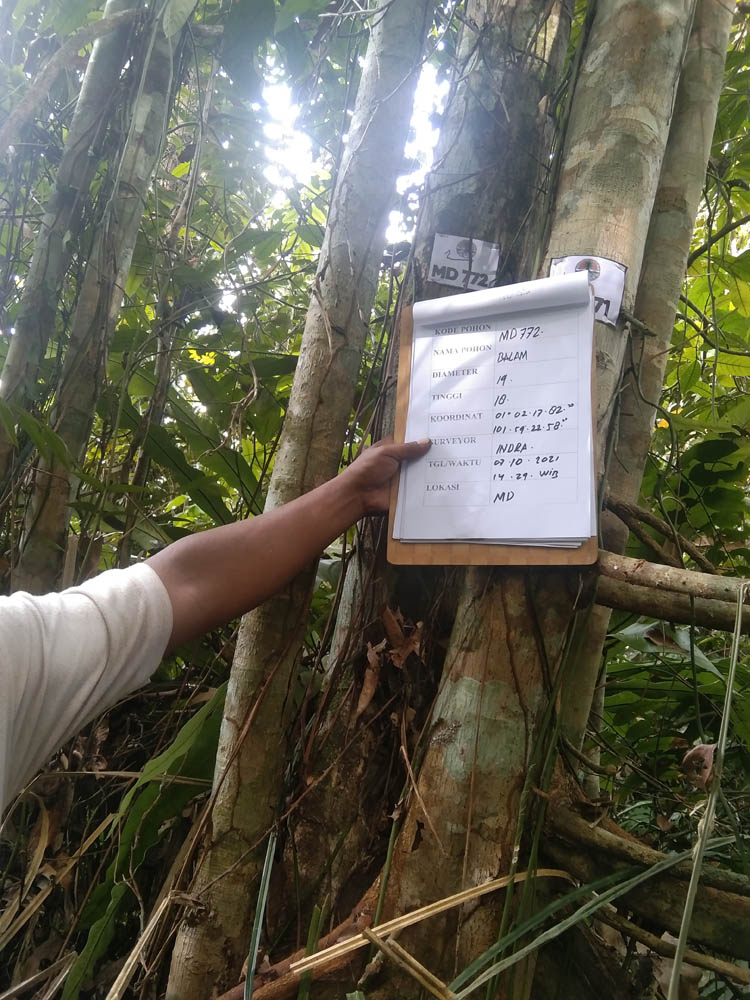 MD 772
71
KODE POHON MD 772.
NAMA POHON BALAM
DIAMETER 19.
TINGGI 18.
KOORDINAT 01° 02. 17. 82."
101. 59. 22. 58."
SURVEYOR INDRA.
TGL/WAKTU 07. 10. 2021
14. 29. WIB
LOKASI MD